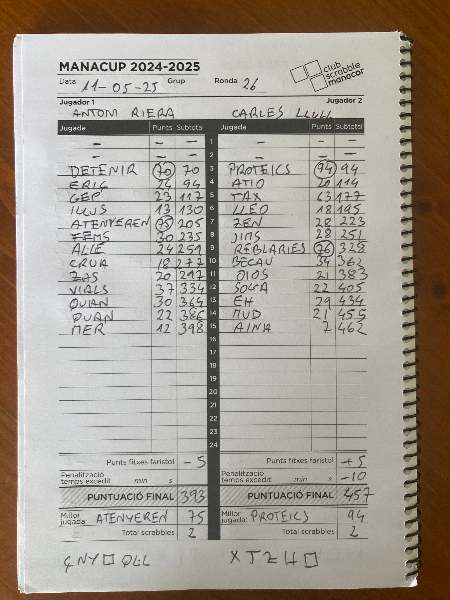 MANACUP 2024-2025
club scrabble manacor
Data 11-05-25 Grup Ronda 26
Jugador 1 Jugador 2
ANTONI RIERA CARLES LLULL
Jugada Punts Subtotal Jugada Punts Subtotal
- - - 1 - - -
- - - 2 - - -
DETENIR 70 70 3 PROTEICS 94 94
ERIC 24 94 4 ATIO 20 114
CEP 23 117 5 TAX 63 177
ILLUS 13 130 6 LLEO 18 195
ATENYEREN 75 205 7 ZEN 28 223
FEMS 30 235 8 JINS 28 251
ALIE 24 259 9 REBLARIES 76 328
CRUA 18 277 10 BECAU 34 362
ZAS 20 297 11 DIOS 21 383
VIALS 37 334 12 SOGA 22 405
QUAN 30 364 13 EH 29 434
QUAN 22 386 14 MUD 21 455
MER 12 398 15 AINA 7 462
16
17
18
19
20
21
22
23
24
Punts fitxes faristol -5 Punts fitxes faristol +5
Penalització temps excedit min s Penalització temps excedit min s -10
PUNTUACIÓ FINAL 393 PUNTUACIÓ FINAL 457
Millor jugada: ATENYEREN 75 Millor jugada: PROTEICS 94
Total scrabbles 2 Total scrabbles 2